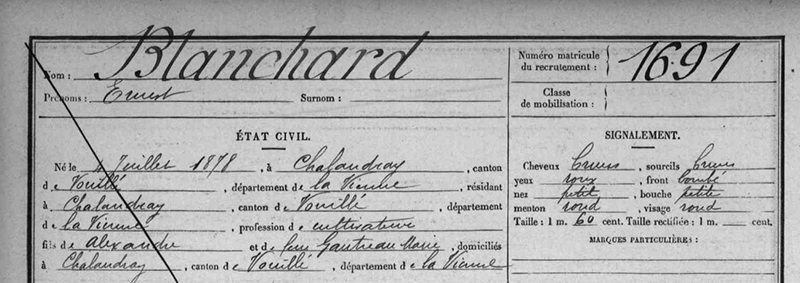 Nom : Blanchard
Prénoms : Ernest Surnom :
Numéro matricule du recrutement : 1691
Classe de mobilisation :
ÉTAT CIVIL.
Né le 4 Juillet 1878, à Chalandray, canton
de Vouillé, département de la Vienne, résidant
à Chalandray, canton de Vouillé, département
de la Vienne, profession de cultivateur
fils de Alexandre et de feue Gautreau Marie, domiciliés
à Chalandray, canton de Vouillé, département de la Vienne
SIGNALEMENT.
Cheveux bruns, sourcils bruns
yeux roux, front bombé
nez petit, bouche petite
menton rond, visage rond
Taille : 1 m. 60 cent. Taille rectifiée : 1 m. cent.
MARQUES PARTICULIÈRES :